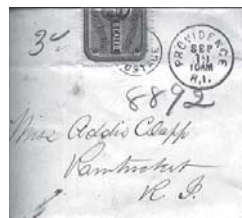 3c
PROVIDENCE
SEP
10AM
R.I.
8892
Miss Addie Clapp
Pawtucket
R. I.